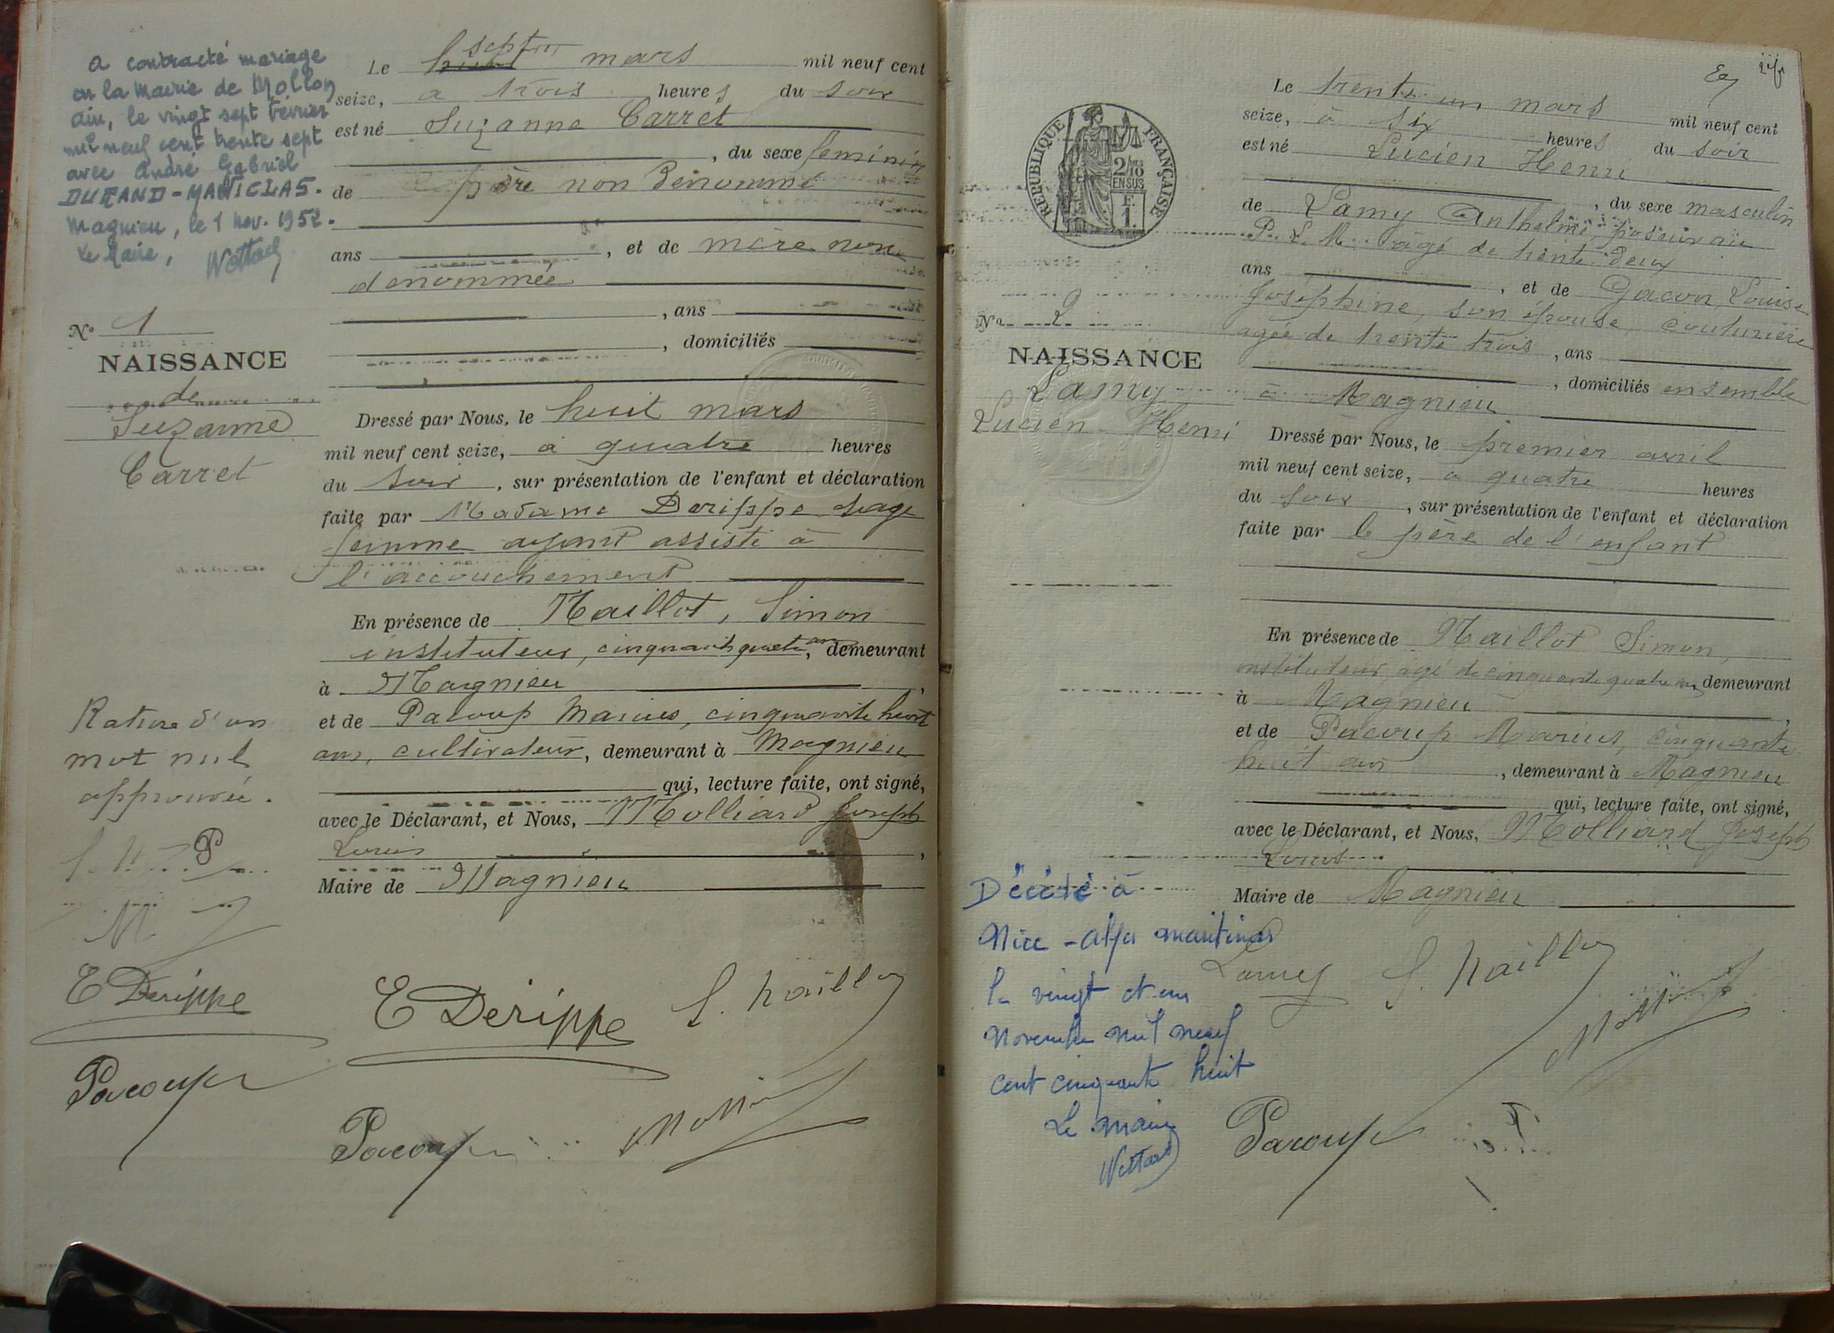 a contracté mariage
en la mairie de Mollon
ain, le vingt sept février
mil neuf cent trente sept
avec André Gabriel
DURAND-MANIGLAS.
Magnieu, le 1 nov. 1952.
Le Maire,
N° 1
NAISSANCE
de
Suzanne
Carret
Rature d'un
mot nul
approuvée.
E Derippe
Pacoup
Le huit sept mars mil neuf cent
seize, à trois heures du soir
est né Suzanne Carret
, du sexe feminin
de père non dénommé
ans , et de mère non
dénommée
, ans
, domiciliés
Dressé par Nous, le huit mars
mil neuf cent seize, à quatre heures
du soir , sur présentation de l'enfant et déclaration
faite par Madame Derippe sage
femme ayant assisté à
l'accouchement
En présence de Maillot, Simon
instituteur, cinquante quatre ans, demeurant
à Magnieu ,
et de Pacoup Marius, cinquante huit
ans, cultivateur, demeurant à Magnieu
qui, lecture faite, ont signé,
avec le Déclarant, et Nous, Molliard Joseph
Louis ,
Maire de Magnieu
E Derippe S. Maillot
Pacoup
RÉPUBLIQUE FRANÇAISE
2/10
EN SUS
1 F.
N° 2
NAISSANCE
Lamy
Lucien Henri
Décédé à
Nice - Alpes maritimes
le vingt et un
Novembre mil neuf
cent cinquante huit
Le maire
Le trente un mars mil neuf cent
seize, à six heures du soir
est né Lucien Henri
, du sexe masculin
de Lamy Anthelme poseur au
P. L. M. âgé de trente deux
ans , et de Gacon Louise
Joséphine, son épouse, couturière
agée de trente trois , ans
, domiciliés ensemble
à Magnieu
Dressé par Nous, le premier avril
mil neuf cent seize, à quatre heures
du soir , sur présentation de l'enfant et déclaration
faite par le père de l'enfant
En présence de Maillot Simon,
instituteur agé de cinquante quatre ans demeurant
à Magnieu ,
et de Pacoup Marius, cinquante
huit ans , demeurant à Magnieu
qui, lecture faite, ont signé,
avec le Déclarant, et Nous, Molliard Joseph
Louis
Maire de Magnieu
Lamy S. Maillot
Pacoup